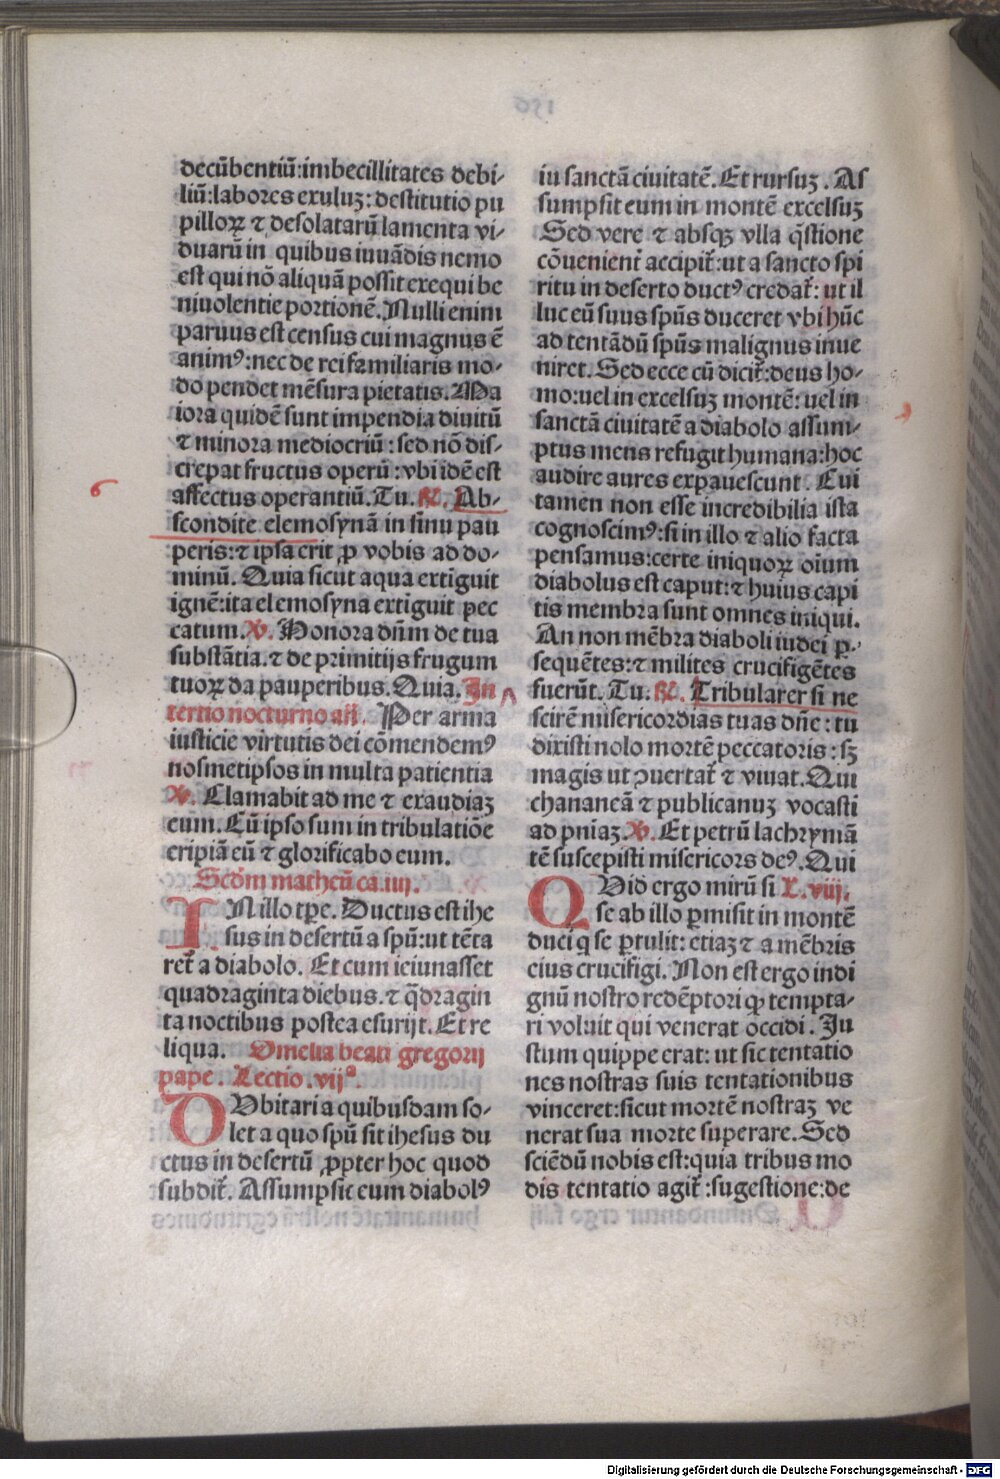 decūbentiū:imbecillitates debi-
liū:labores exuluꝫ: destitutio pu
pilloꝝ ⁊ desolatarū lamenta vi-
duarū in quibus iuuādis nemo
est qui nō aliquā possit exequi be
niuolentie portionē. Nulli enim
paruus est census cui magnus ē
animꝰ: nec de rei familiaris mo-
do pendet mēsura pietatis. Ma
iora quidē sunt impendia diuitū
⁊ minora mediocriū: sed nō dis-
crepat fructus operū: vbi idē est
affectus operantiū. Tu. ℟. Ab-
scondite elemosynā in sinu pau
peris: ⁊ ipsa erit ꝓ vobis ad do-
minū. Quia sicut aqua extiguit
ignē: ita elemosyna extiguit pec
catum. ℣. Honora dūm de tua
substātia. ⁊ de primitijs frugum
tuoꝝ da pauperibus. Quia. In
tertio nocturno añ. Per arma
iusticie virtutis dei cōmendemꝰ
nosmetipsos in multa patientia
℣. Clamabit ad me ⁊ exaudiaꝫ
eum. Cū ipso sum in tribulatiōe
eripiā eū ⁊ glorificabo eum.
Scd̄m matheū ca. iiij.
IN illo tp̄e. Ductus est ihe
sus in desertū a spū: ut tēta
ret̄ a diabolo. Et cum ieiunasset
quadraginta diebus. ⁊ q̄dragin
ta noctibus postea esurijt. Et re
liqua. Omelia beati gregorij
pape. Lectio. vijᵃ.
DVbitari a quibusdam so-
let a quo spū sit ihesus du
ctus in desertū ꝓpter hoc quod
subdit̄. Assumpsit eum diabolꝰ
in sanctā ciuitatē. Et rursuꝫ. As
sumpsit eum in montē excelsuꝫ
Sed vere ⁊ absqꝫ vlla q̄stione
cōuenient̄ accipit̄: ut a sancto spi
ritu in deserto ductꝰ credat̄: ut il
luc eū suus spūs duceret vbi hūc
ad tentādū spūs malignus inue
niret. Sed ecce cū dicit̄: deus ho-
mo: uel in excelsuꝫ montē: uel in
sanctā ciuitatē a diabolo assum-
ptus mens refugit humana: hoc
audire aures expauescunt. Cui
tamen non esse incredibilia ista
cognoscimꝰ: si in illo ⁊ alio facta
pensamus: certe iniquoꝝ oīum
diabolus est caput: ⁊ huius capi
tis membra sunt omnes iniqui.
An non mēbra diaboli iudei ꝑ-
sequētes: ⁊ milites crucifigētes
fuerūt. Tu. ℟. Tribularer si ne
scirē misericordias tuas dn̄e: tu
dixisti nolo mortē peccatoris: sꝫ
magis ut ꝯuertat̄ ⁊ viuat. Qui
chananeā ⁊ publicanuꝫ vocasti
ad pn̄iaꝫ. ℣. Et petrū lachrymā
tē suscepisti misericors deꝰ. Qui
QVid ergo mirū si L. viij.
se ab illo ꝑmisit in montē
duci q̄ se ꝑtulit: etiaꝫ ⁊ a mēbris
eius crucifigi. Non est ergo indi
gnū nostro redēptori ꝙ tempta-
ri voluit qui venerat occidi. Iu
stum quippe erat: ut sic tentatio
nes nostras suis tentationibus
vinceret: sicut mortē nostraꝫ ve
nerat sua morte superare. Sed
sciēdū nobis est: quia tribus mo
dis tentatio agit̄: sugestione: de
Digitalisierung gefördert durch die Deutsche Forschungsgemeinschaft - DFG